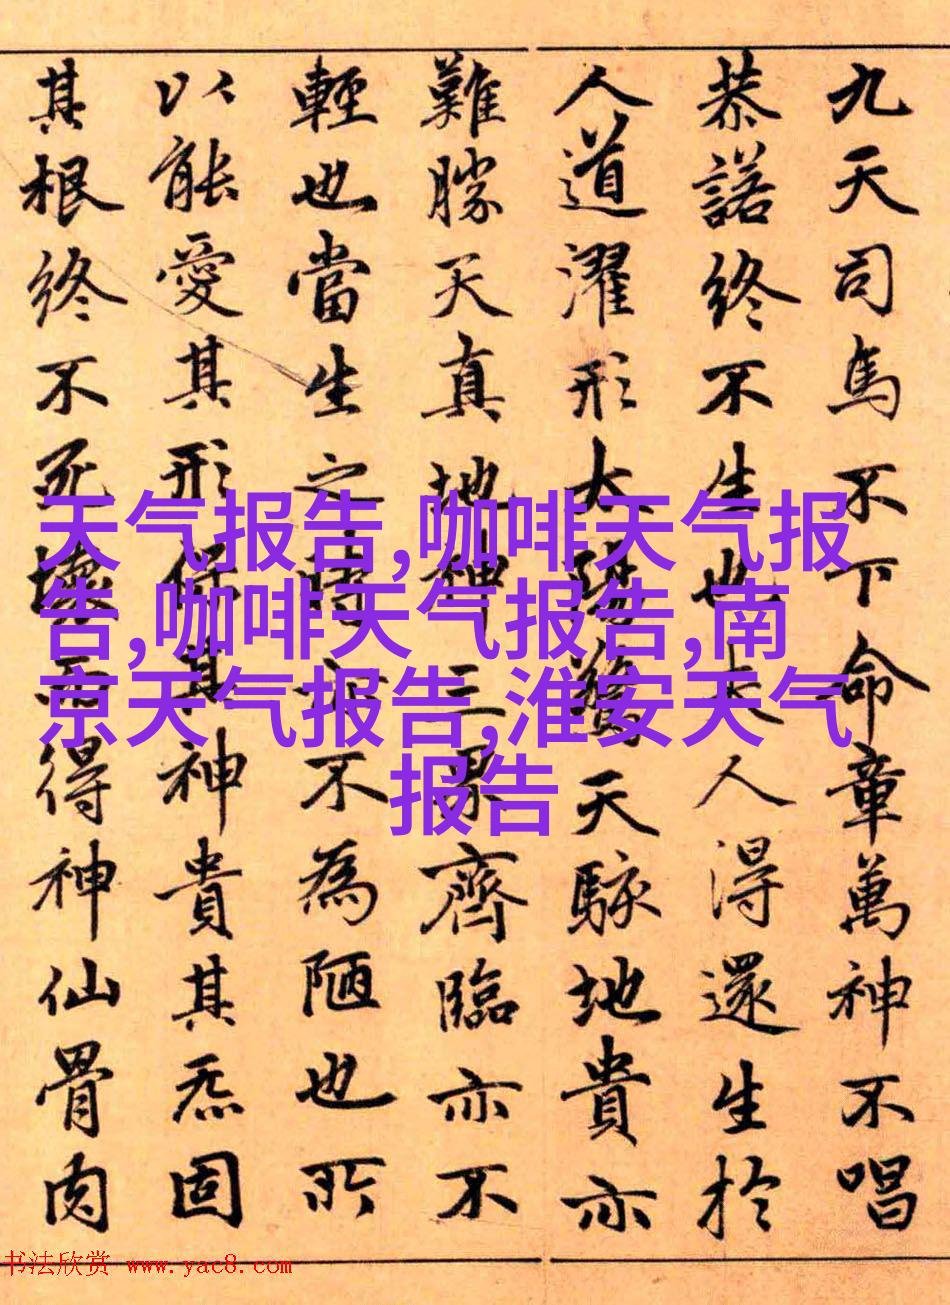 九天司馬不下命章萬神不唱
恭諾終不生也夫人得還生於
人道濯形太陽驚天駭地貴亦
難勝天真地神三界齊臨亦不
輕也當生之時亦不為陋也所
以能愛其形保其神貴其炁固
其根終不死壞而得神仙骨肉
天气报告,咖啡天气报
告,咖啡天气报告,南
京天气报告,淮安天气
报告
书法欣赏 www.yac8.com